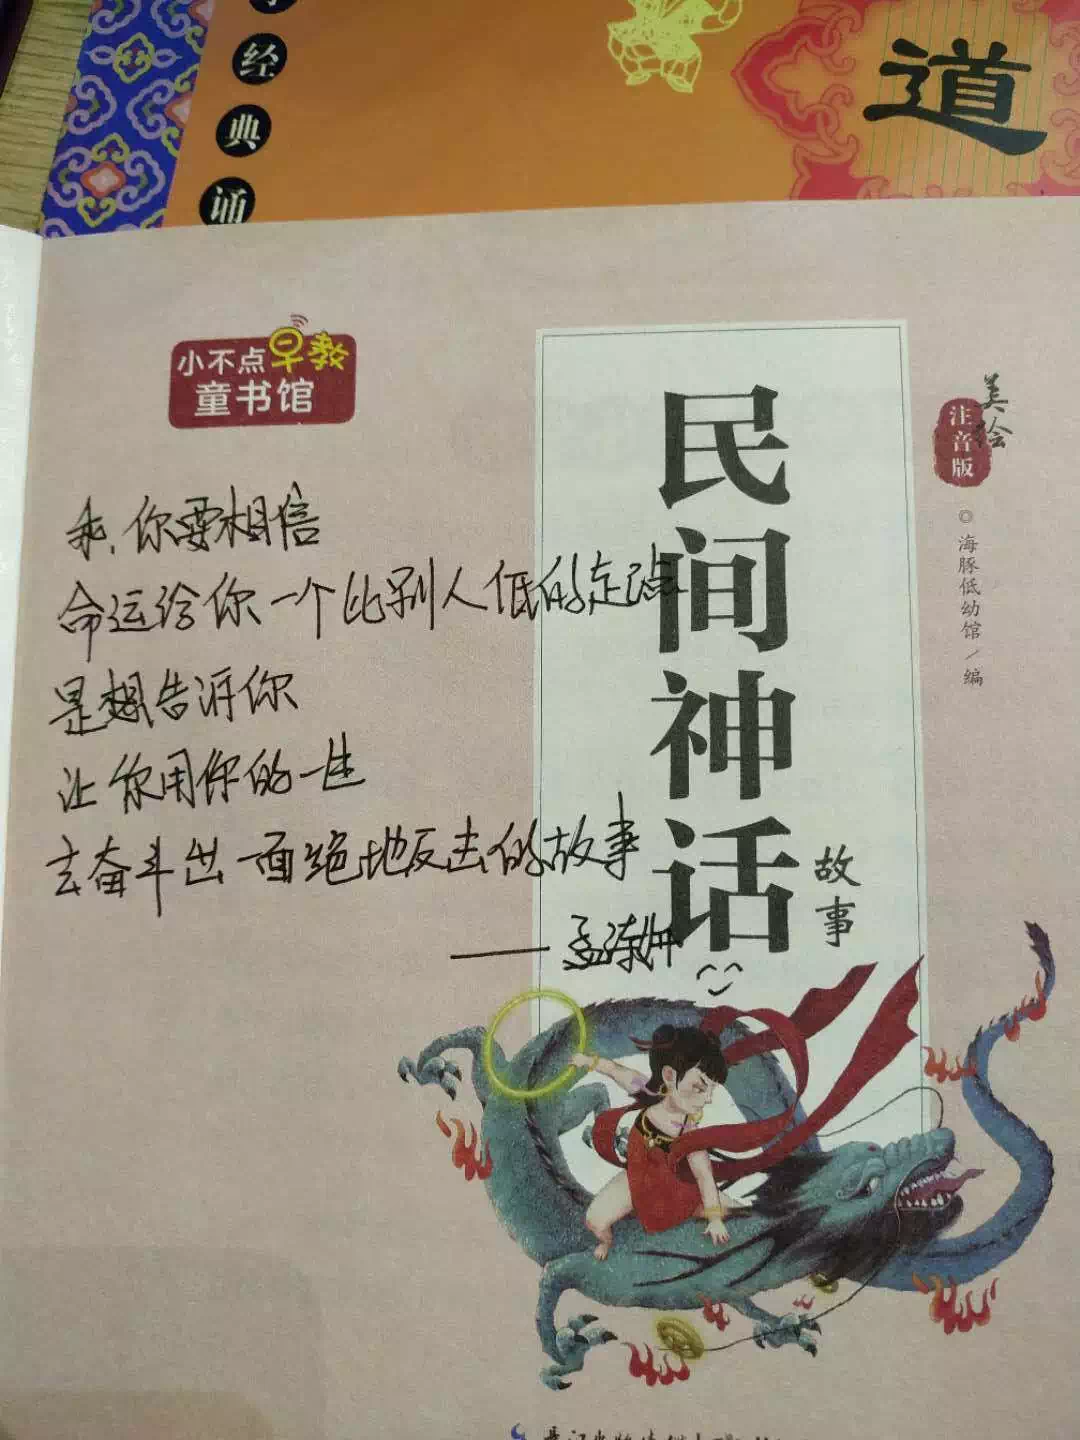 经
典
诵
道
小不点早教
童书馆
民间神话
故事
美绘
注音版
◎海豚低幼馆/编
乖,你要相信
命运给你一个比别人低的起点
是想告诉你
让你用你的一生
去奋斗出一面绝地反击的故事